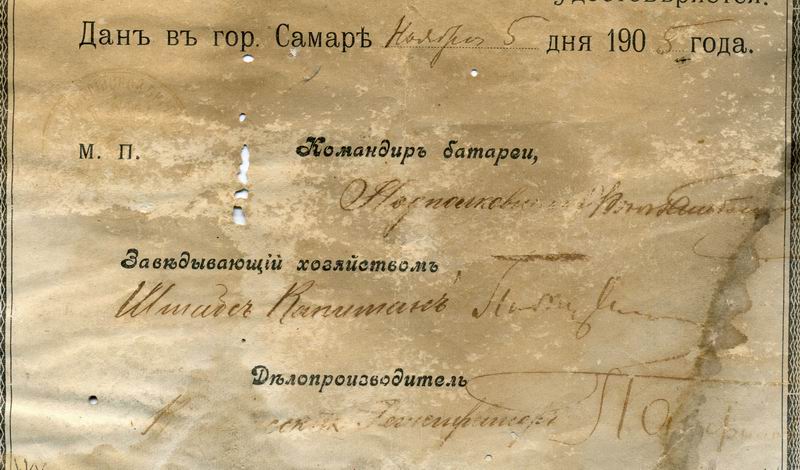 удостовѣряется.
Данъ въ гор. Самарѣ Ноября 5 дня 1905 года.
М. П.
Командиръ батареи,
Подполковникъ
Завѣдывающій хозяйствомъ,
Штабсъ Капитанъ
Дѣлопроизводитель
Регистраторъ